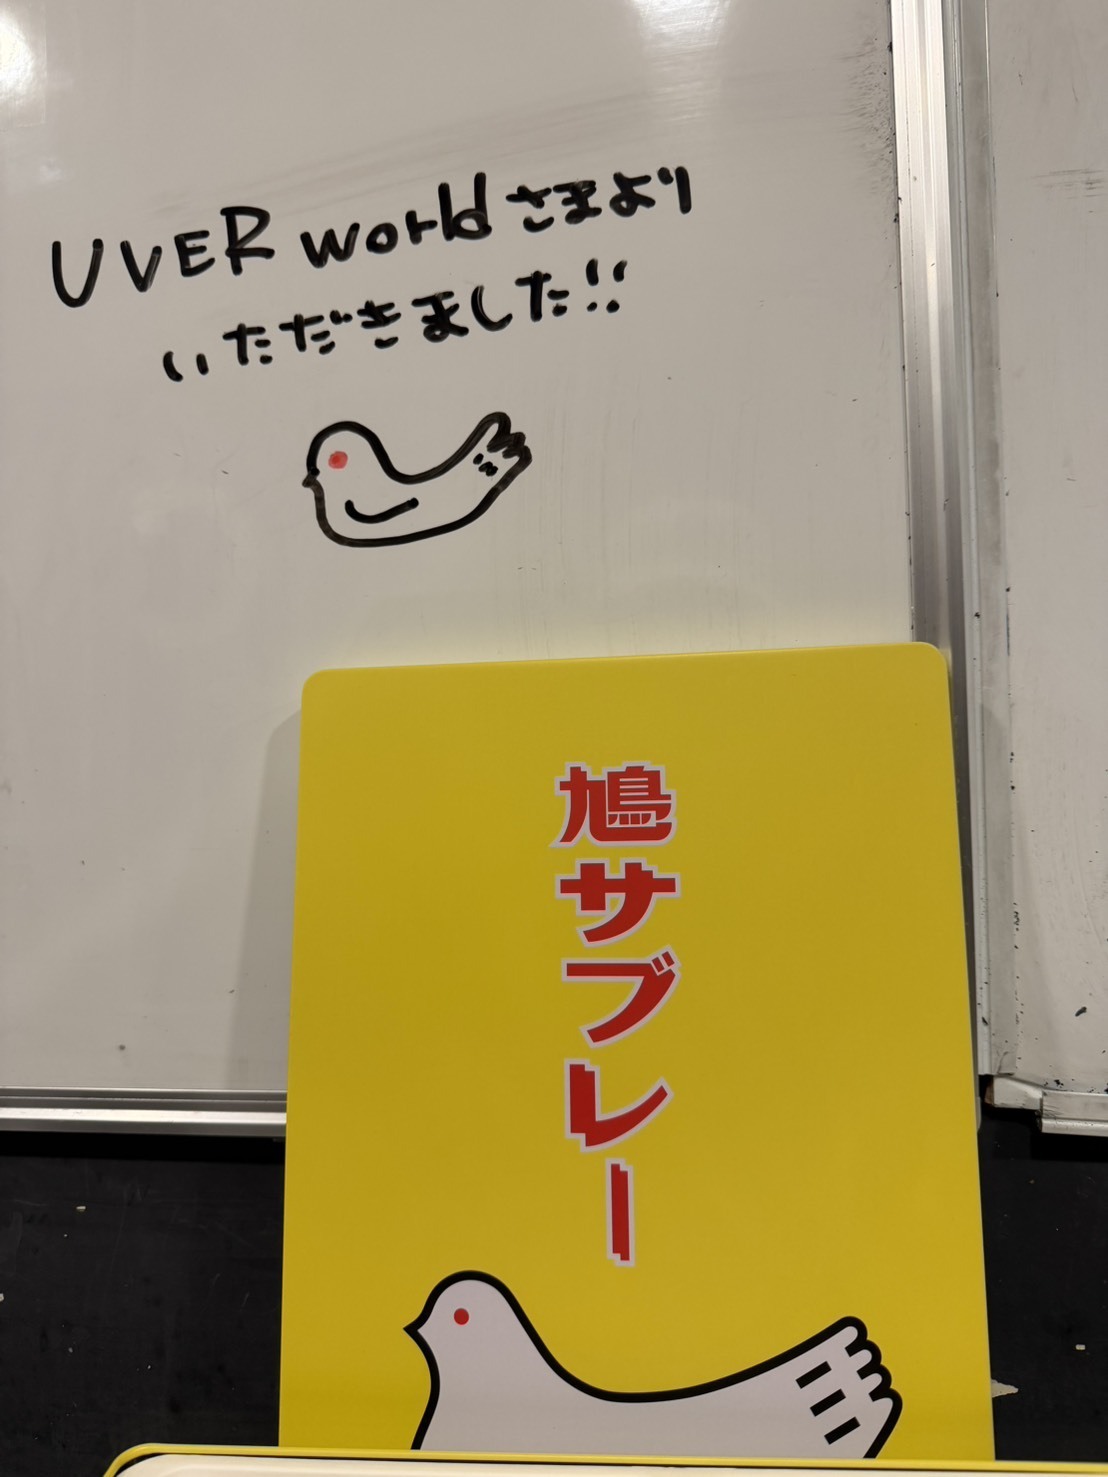 UVERworldさまより
いただきました!!
鳩サブレー